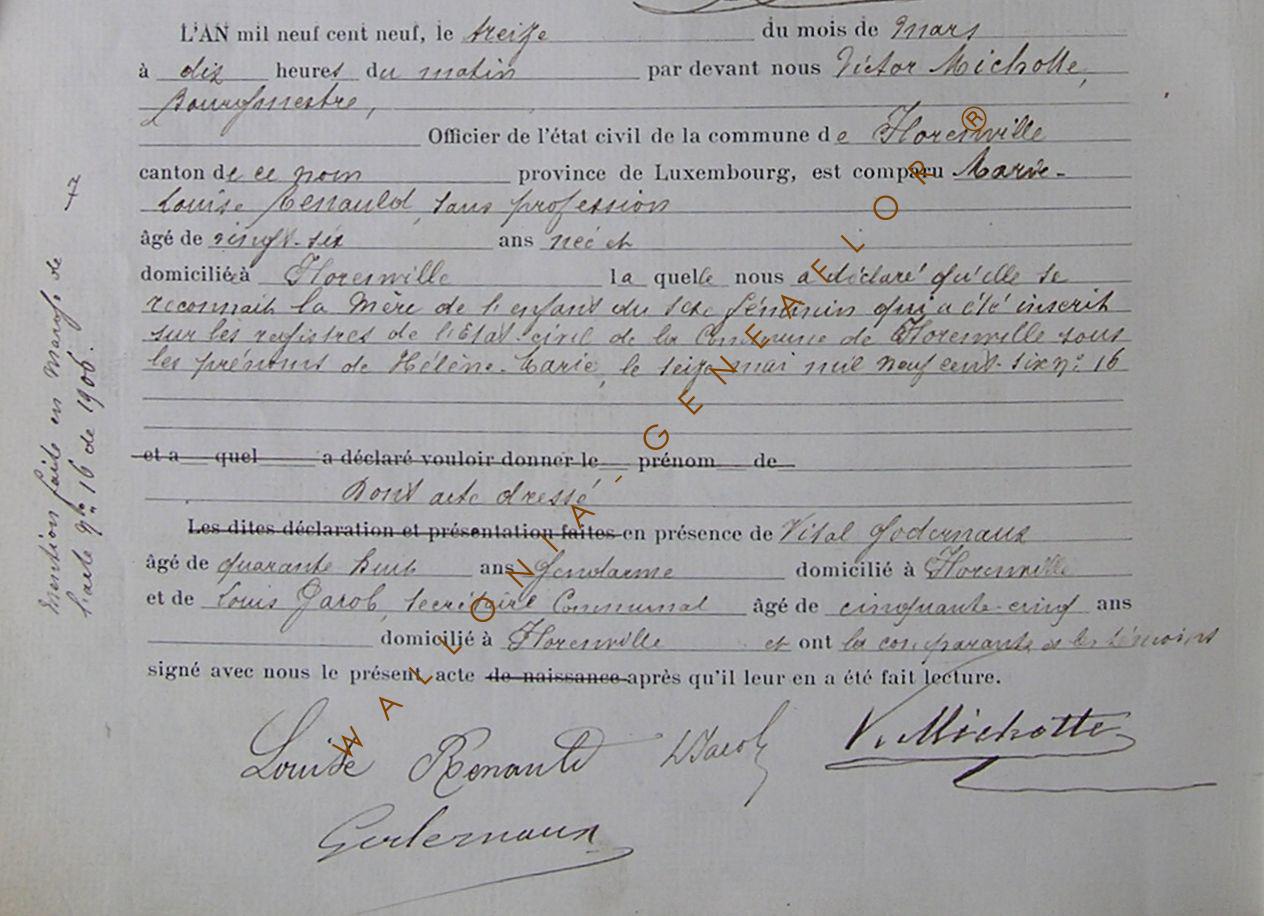 L'AN mil neuf cent neuf, le treize du mois de Mars
à dix heures du matin par devant nous Victor Michotte,
Bourgmestre,
Officier de l'état civil de la commune de Florenville
canton de ce nom province de Luxembourg, est comparu Marie-
Louise Renauld, sans profession
âgé de vingt-six ans née et
domiciliée à Florenville laquelle nous a déclaré qu'elle se
reconnait la Mère de l'enfant du sexe féminin qui a été inscrit
sur les registres de l'Etat-civil de la Commune de Florenville sous
les prénoms de Hélène-Marie, le seize mai mil neuf cent-six n° 16
et a quel a déclaré vouloir donner le prénom de
Dont acte dressé
Les dites déclaration et présentation faites en présence de Vital Godernaux
âgé de quarante huit ans Gendarme domicilié à Florenville
et de Louis Jacob, secrétaire Communal âgé de cinquante-cinq ans
domicilié à Florenville et ont la comparante et les témoins
signé avec nous le présent acte de naissance après qu'il leur en a été fait lecture.
Louise Renauld LJacob V. Michotte
Godernaux
7
Mention faite en Marge de
l'acte n° 16 de 1906.
WALLONIA-GENEAFLOR ®